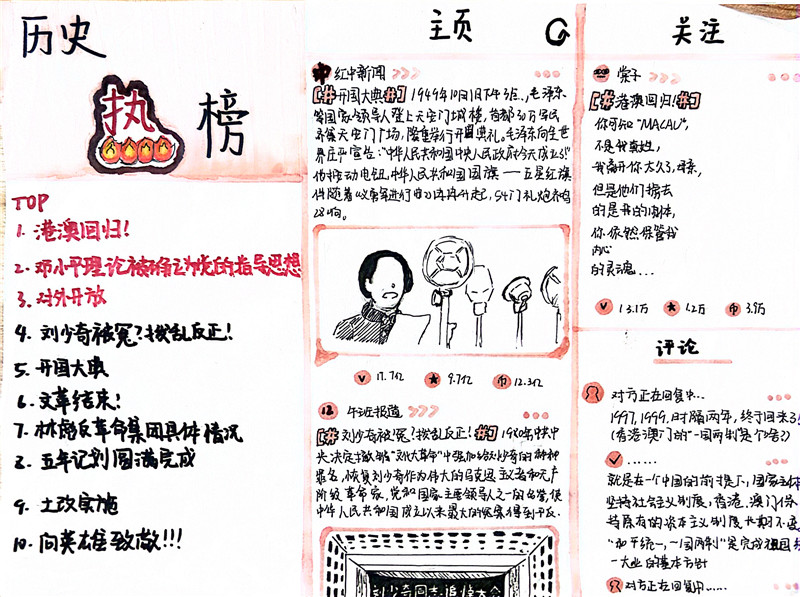 历史
热
榜
TOP
1. 港澳回归!
2. 邓小平理论被确立为党的指导思想
3. 对外开放
4. 刘少奇被冤?拨乱反正!
5. 开国大典
6. 文革结束!
7. 林彪反革命集团具体情况
8. 五年计划圆满完成
9. 土改实施
10. 向英雄致敬!!!
主页
红中新闻 >>>
[#开国大典#] 1949年10月1日下午3点,毛泽东
等国家领导人登上天安门城楼,首都30万军民
齐聚天安门广场,隆重举行开国典礼。毛泽东向全世
界庄严宣告:"中华人民共和国中央人民政府今天成立了!"
他按动电钮,中华人民共和国国旗——五星红旗
伴随着《义勇军进行曲》冉冉升起,54门礼炮齐鸣
28响。
17.7亿
9.7亿
12.3亿
12 午班报道 >>>
[#刘少奇被冤?拨乱反正!#] 1980年中共中
央决定撤销"刘少奇"中强加给刘少奇的种种
罪名,恢复刘少奇作为伟大的马克思主义者和无产
阶级革命家,党和国家主要领导人之一的名誉,使
中华人民共和国成立以来最大的冤案得到平反。
刘少奇同志追悼大会
关注
崇子 >>>
[#港澳回归!#]
你可知"MACAU",
不是我真姓,
我离开你太久了,母亲,
但是他们掳去
的是我的肉体,
你依然保管我
内心
的灵魂...
13.1万
1.2万
3.9万
评论
对方正在回复中...
1997,1999,时隔两年,终于回来了
(香港澳门的"一国两制"是个啥?)
......
就是在一个中国的前提下,国家主体
坚持社会主义制度,香港、澳门保
持原有的资本主义制度长期不变
"和平统一,一国两制"是完成祖国统
一大业的基本方针
对方正在回复中......